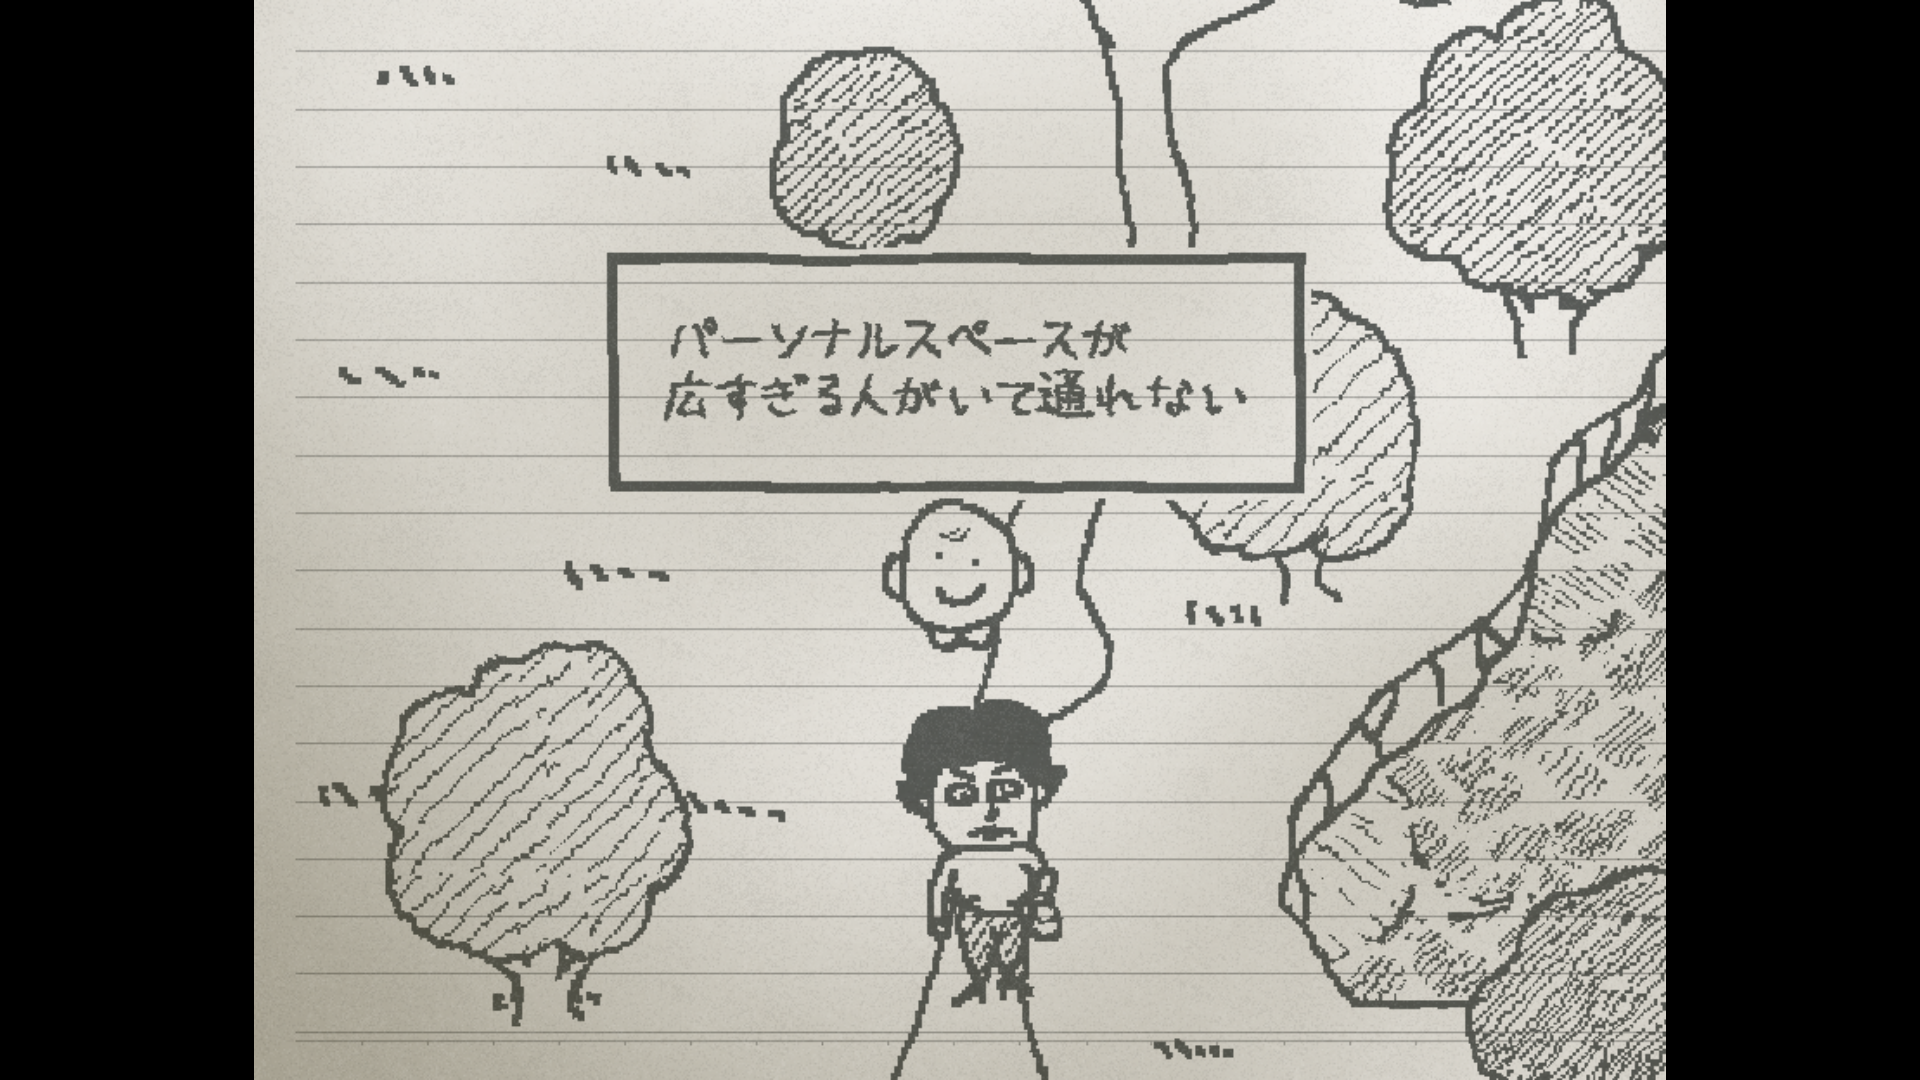 パーソナルスペースが
広すぎる人がいて通れない